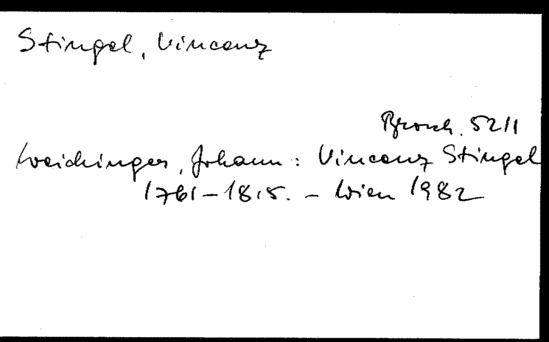 Stingel, Vincenz
Brosch. 5211
Weichinger, Johann: Vincenz Stingel
1761–1815. – Wien 1982